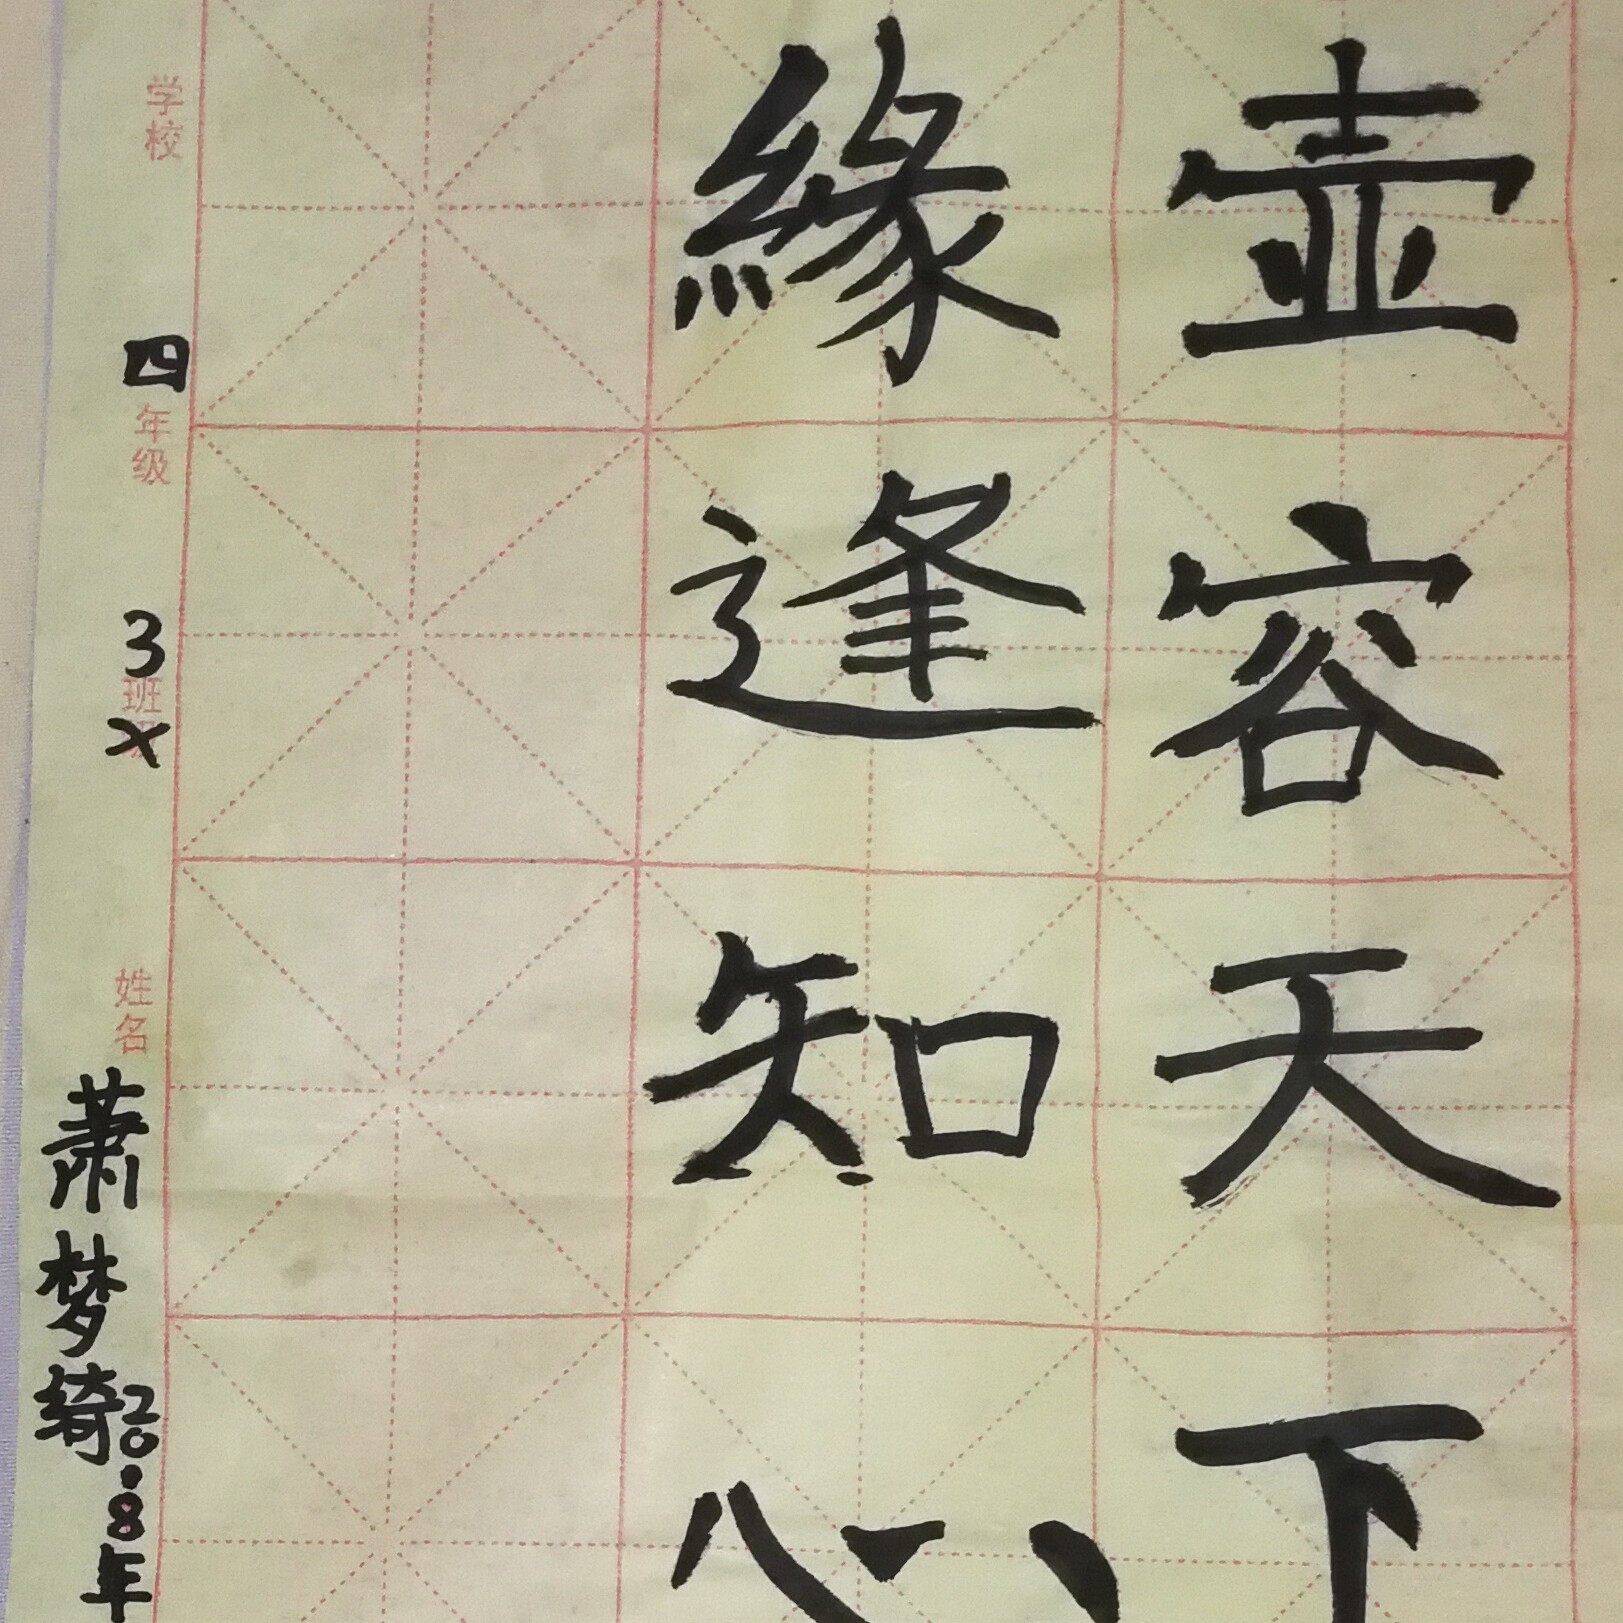 壶容天下
緣逢知心
学校
四年级
3班级
姓名
萧梦绮
20.8年